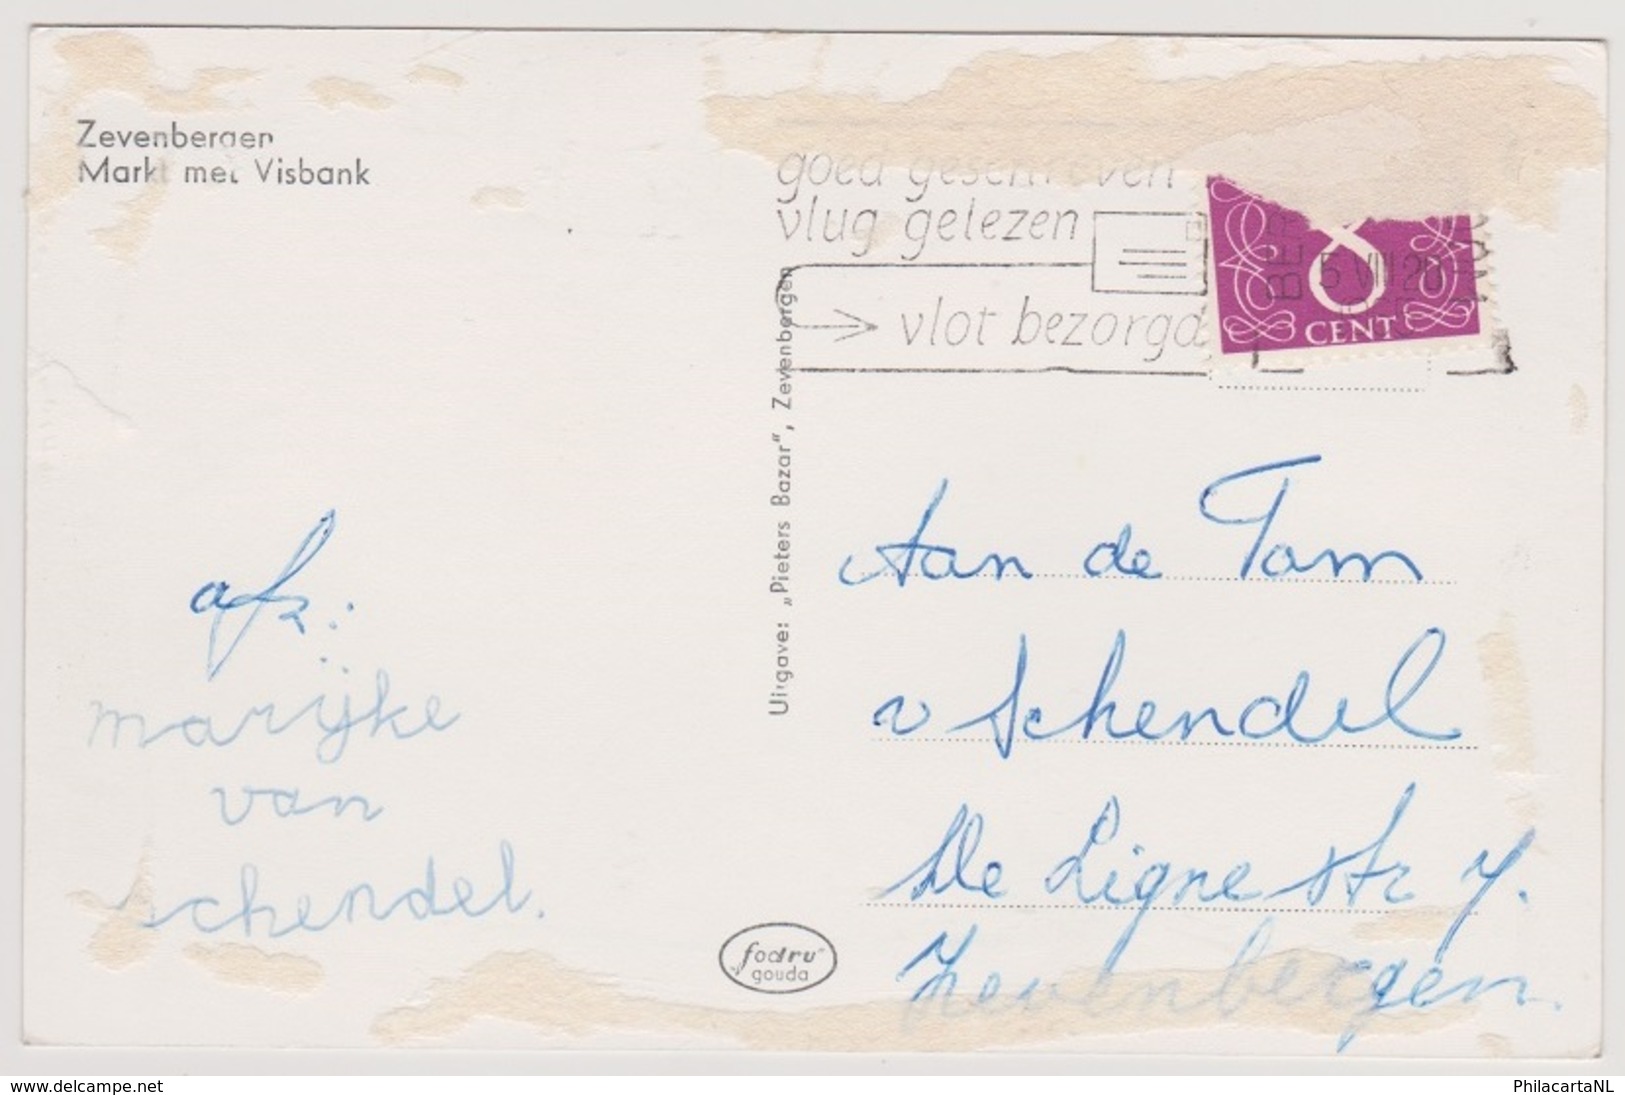 Zevenbergen
Markt met Visbank
goed geschreven
vlug gelezen
vlot bezorgd
8
CENT
5 VIII 20
Uitgave: „Pieters Bazar”, Zevenbergen
afz:
marijke
van
schendel.
Aan de Fam
v Schendel
De Ligne str 7.
Zevenbergen.
„fodru”
gouda
www.delcampe.net
PhilacartaNL